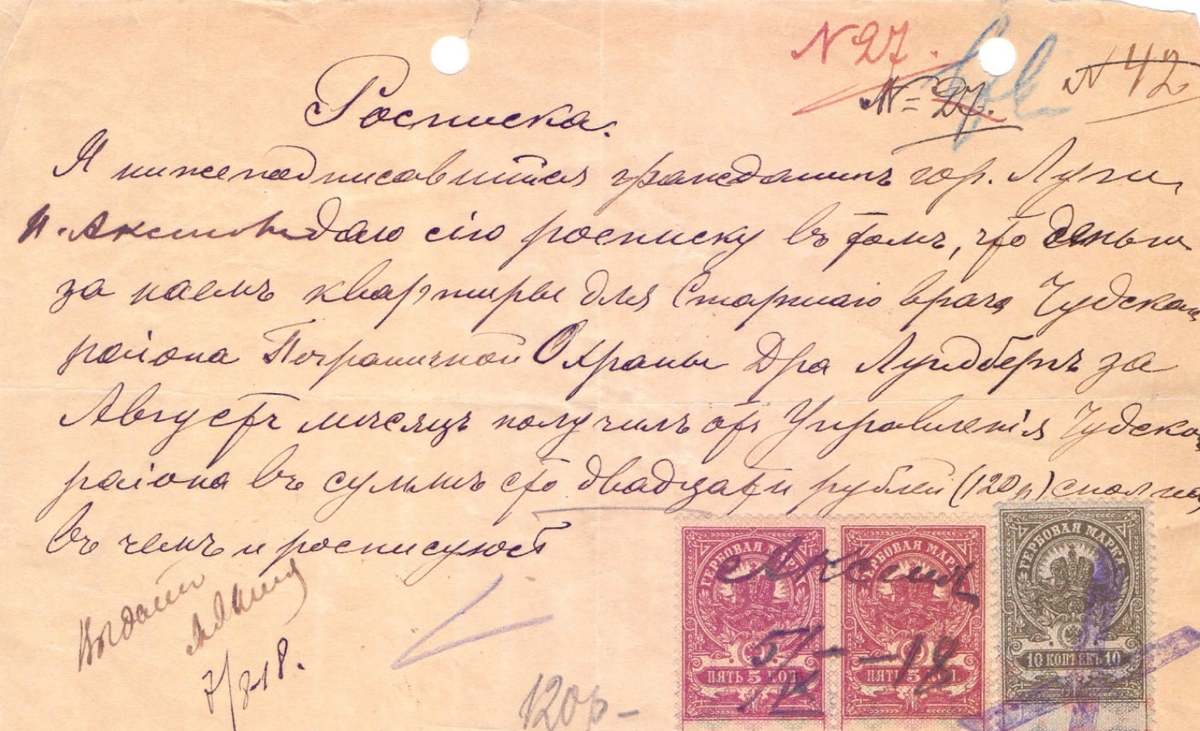 N 27.
N = 27.
N 42
Росписка.
Я нижеподписавшийся гражданинъ гор. Луги
даю сію росписку въ томъ, что деньги
за наемъ квартиры для Старшаго врача Чудского
района Пограничной Охраны Дра Лундбергъ за
Августъ мѣсяцъ получилъ отъ Управленія Чудского
района въ суммѣ сто двадцати рублей (120 р) сполна
въ чемъ и росписуюсь
Выдать
7/8-18.
120 р-
ГЕРБОВАЯ МАРКА ГЕРБОВАЯ МАРКА ГЕРБОВАЯ МАРКА
5/ - -18
IX
ПЯТЬ 5 КОП. ПЯТЬ 5 КОП. 10 КОПѢЕКЪ 10